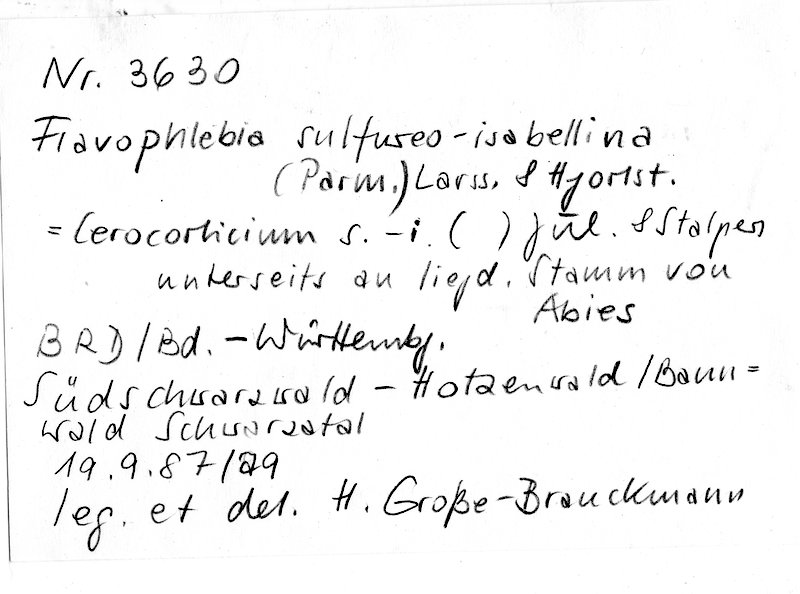 Nr. 3630
Flavophlebia sulfureo-isabellina
(Parm.) Larss. & Hjortst.
= Cerocorticium s.-i. ( ) Jül. & Stalpers
unterseits an liegd. Stamm von
Abies
BRD/Bd.-Württembg.
Südschwarzwald - Hotzenwald/Bann=
wald Schwarzatal
19.9.87/
leg. et det. H. Große-Brauckmann